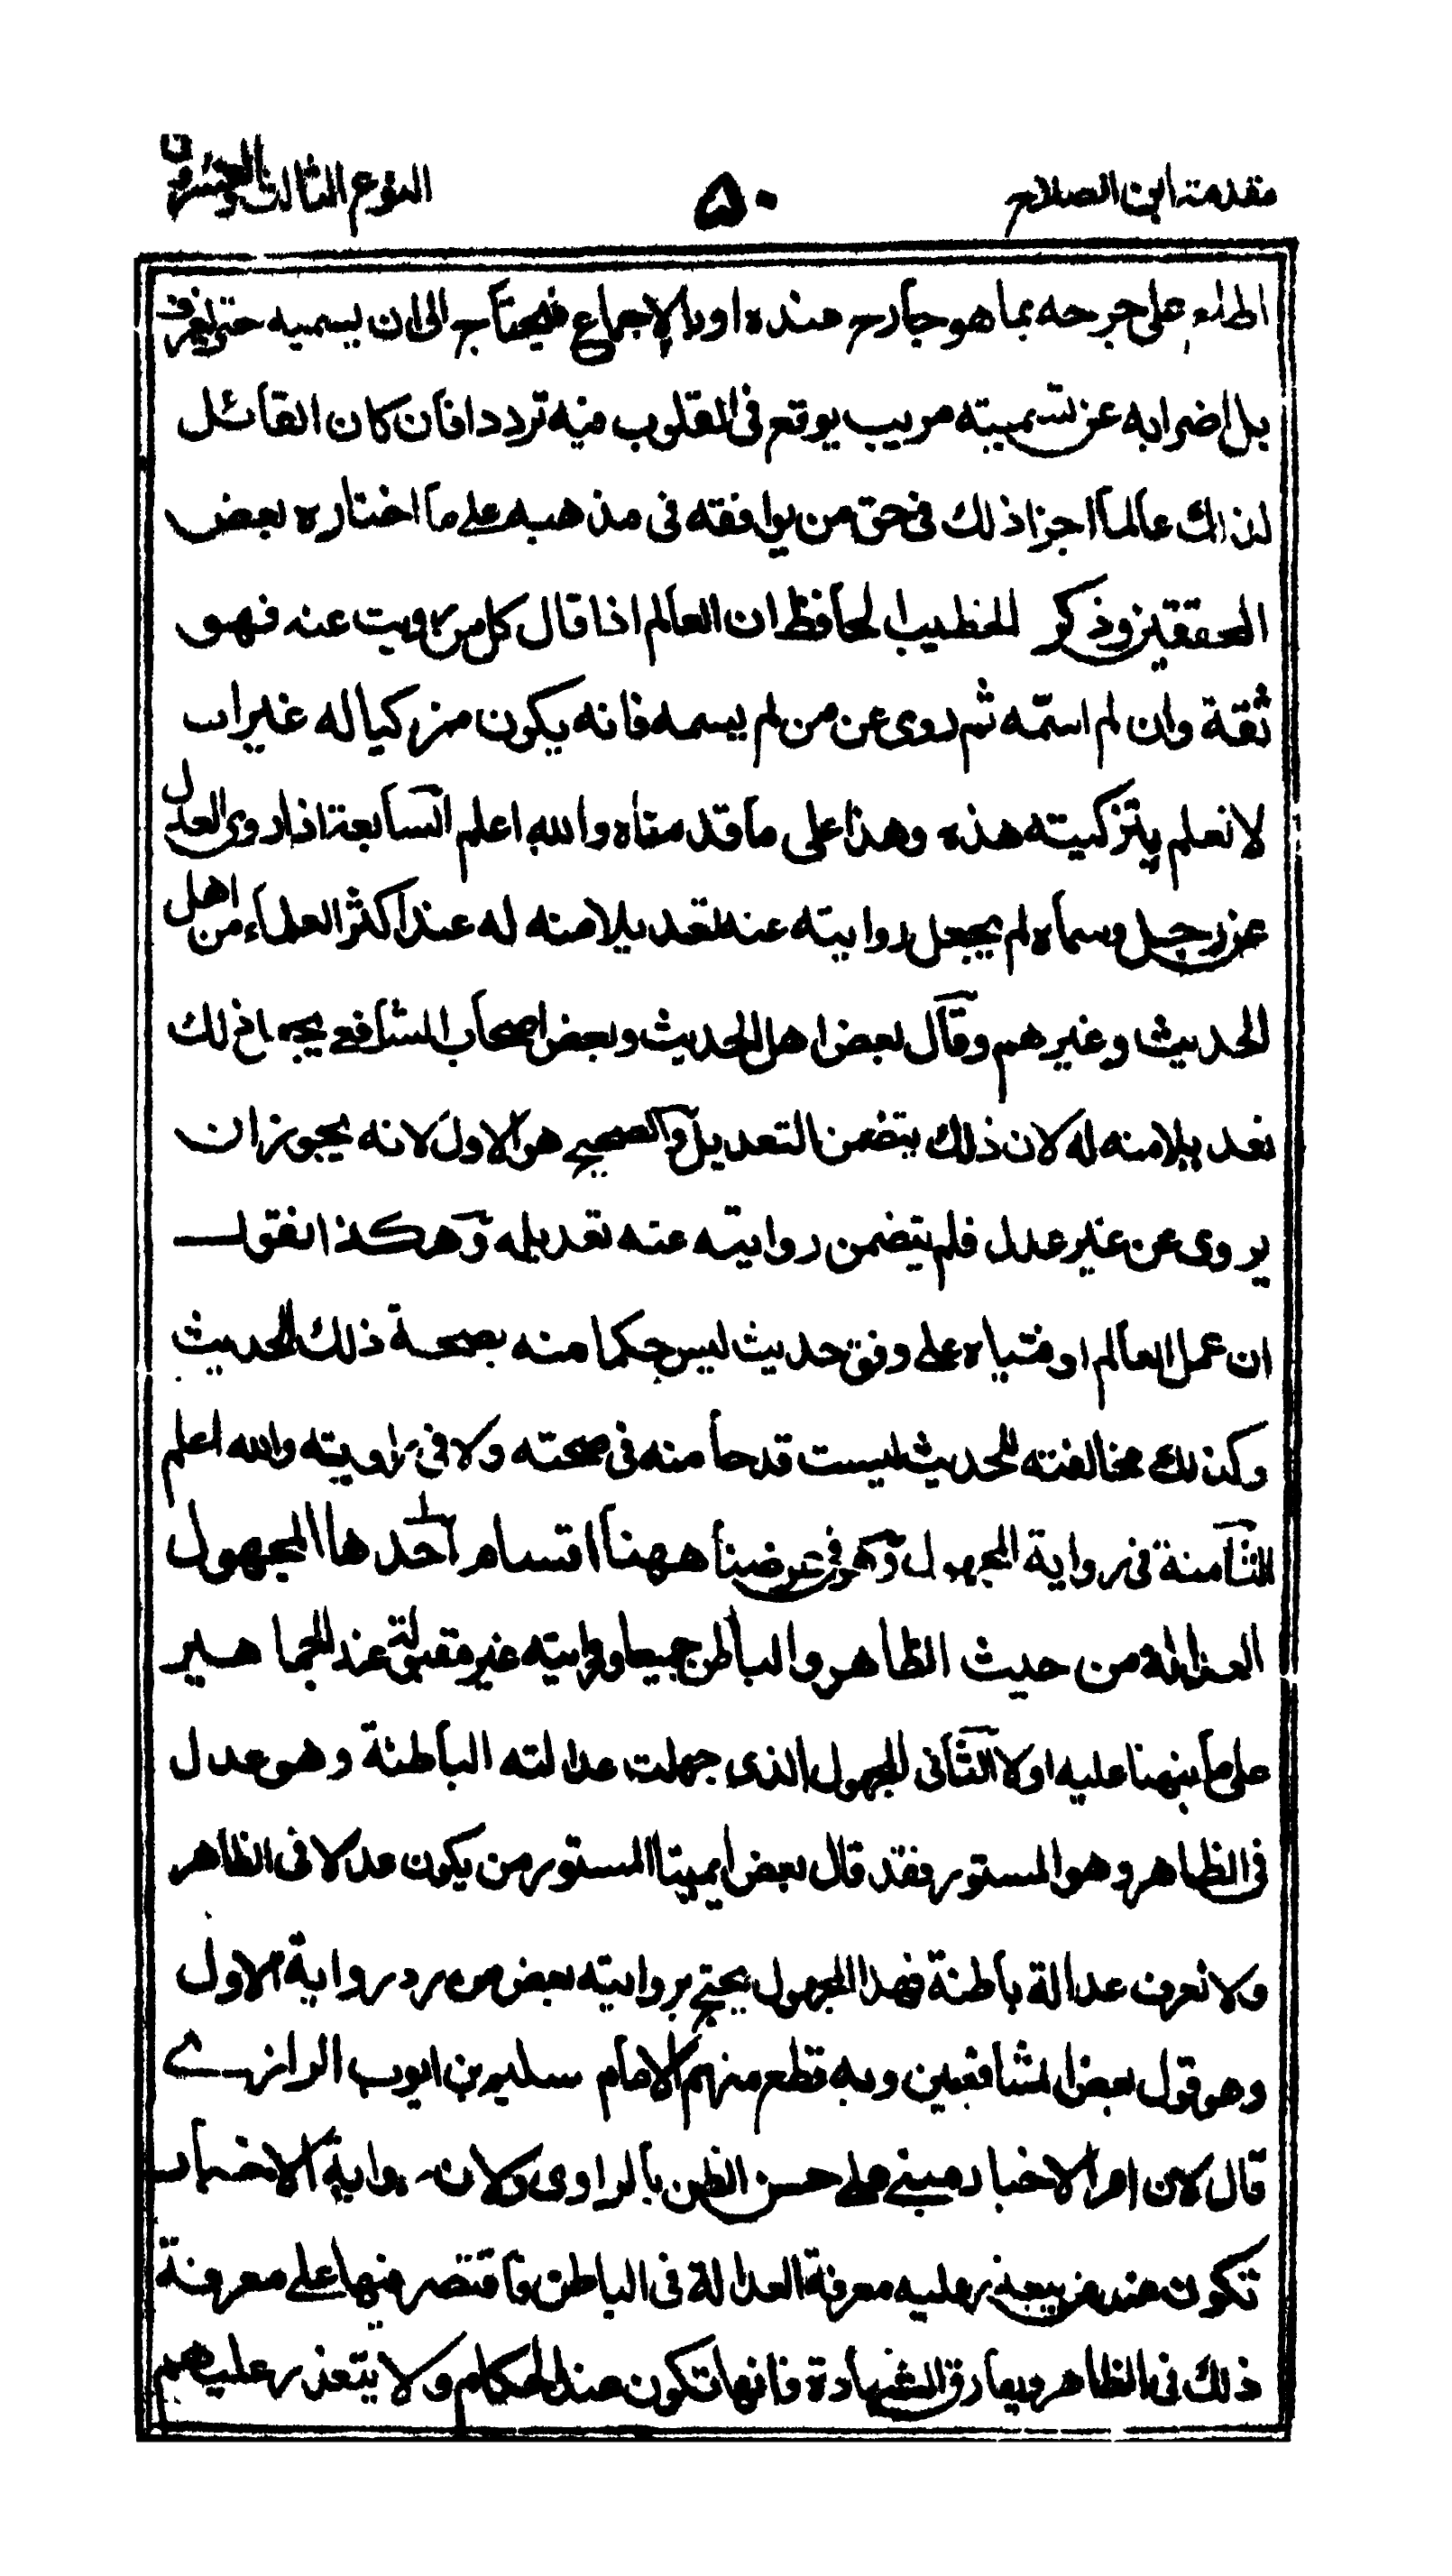 مقدمة ابن الصلاح
۵۰
النوع الثالث والعشرون
اطلع على جرحه بما هو جارح عنده او بالاجماع فيحتاج الى ان يسميه حتى يعرف
بل اضرابه عن تسميته مريب يوقع فى القلوب فيه ترددا فان كان القائل
لذلك عالما اجزا ذلك فى حق من يوافقه فى مذهبه على ما اختاره بعض
المحققين وذكر الخطيب الحافظ ان العالم اذا قال كل من رويت عنه فهو
ثقة وان لم اسمّه ثم روى عن من لم يسمه فانه يكون مزكيا له غير انا
لا نعلم بتزكيته هذه وهذا على ما قدمناه والله اعلم السابعة اذا روى العدل
عن رجل وسماه لم يجعل روايته عنه تعديلا منه له عند اكثر العلماء من اهل
الحديث وغيرهم وقال بعض اهل الحديث وبعض اصحاب الشافعے يجعل ذلك
تعديلا منه له لان ذلك يتضمن التعديل والصحيح هو الاول لانه يجوز ان
يروى عن غير عدل فلم يتضمن روايته عنه تعديله وهكذا نقول
ان عمل العالم او فتياه على وفق حديث ليس حكما منه بصحة ذلك الحديث
وكذلك مخالفته للحديث ليست قدحا منه فى صحته ولا فى راويته والله اعلم
الثامنة فى رواية المجهول وهو فى غرضنا ههنا اقسام احدها المجهول
العدالة من حيث الظاهر والباطن جميعا وروايته غير مقبولة عند الجماهير
على ما نبهنا عليه اولا الثانى المجهول الذى جهلت عدالته الباطنة وهو عدل
فى الظاهر وهو المستور وفقد قال بعض ايمتنا المستور من يكون عدلا فى الظاهر
ولا نعرف عدالة باطنة فهذا المجهول يحتج بروايته بعض من رد رواية الاول
وهو قول بعض الشافعيين وبه قطع منهم الامام سليم بن ايوب الرازے
قال لان امر الاخبار مبنے على حسن الظن بالراوى ولان رواية الاخبار
تكون عند من يتعذر عليه معرفة العدالة فى الباطن فاقتصر فيها على معرفة
ذلك فى الظاهر ويفارق الشهادة فانها تكون عند الحكام ولا يتعذر عليهم